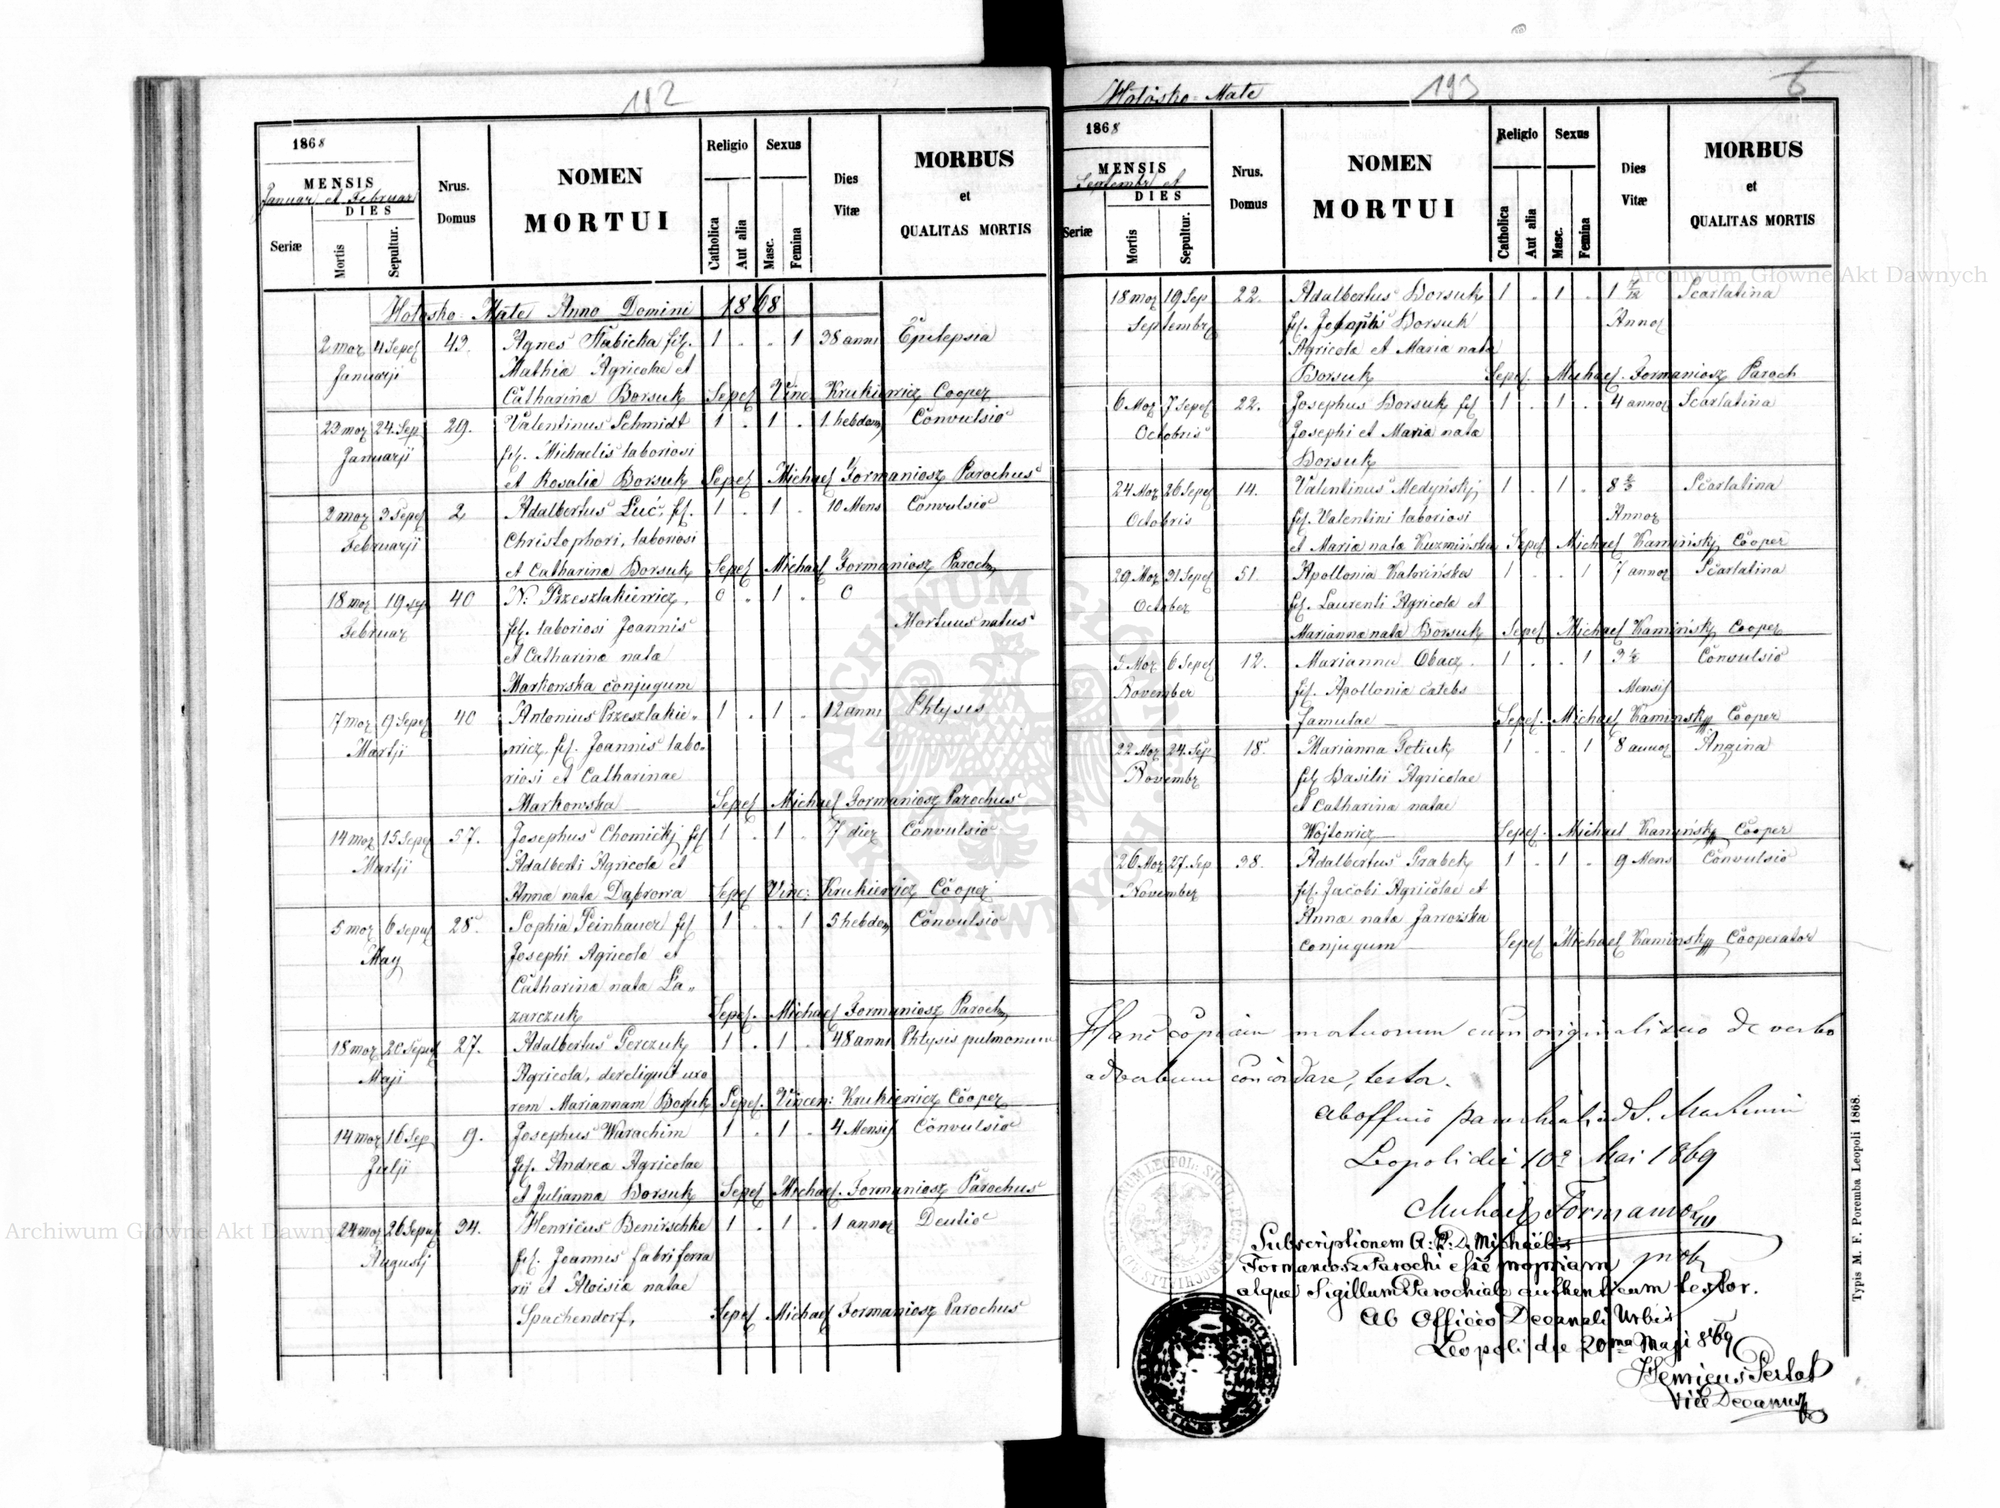 192
1868
MENSIS
Januar et Februar
DIES
Seriæ
Mortis
Sepultur.
Nrus.
Domus
NOMEN
MORTUI
Religio
Catholica
Aut alia
Sexus
Masc.
Femina
Dies
Vitæ
MORBUS
et
QUALITAS MORTIS
Hołosko Małe Anno Domini 1868
2 mor 4 Sepel 43. Agnes Słabicka fil. 1 . . 1 38 anni Epilepsia
Januarji Mathiæ Agricolae et
Catharinæ Borsuk Sepel Vinc Krukiewicz Cooper
23 mor 24 Sep 29. Valentinus Schmidt 1 . 1 . 1 hebdom Convulsio
Januarji fil. Michaelis laboriosi
et Rosaliæ Borsuk Sepel Michael Formaniosz Parochus
2 mor 3 Sepel 2 Adalbertus Łuć, fil. 1 . 1 . 10 Mens Convulsio
Februarji Christophori, laboriosi
et Catharinæ Borsuk Sepel Michael Formaniosz Paroch
18 mor 19 sep 40 N: Przeszlakiewicz, 0 . 1 . 0
Februar fil. laboriosi Joannis Mortuus natus
et Catharinæ natæ
Markowska conjugum
7 mor 9 Sepel 40 Antonius Przeszlakie- 1 . 1 . 12 anni Phtysis
Martji wicz, fil. Joannis labo-
riosi et Catharinae
Markowska Sepel Michael Formaniosz Parochus
14 mor 15 Sepel 57. Josephus Chomickj fil 1 . 1 . 7 dier Convulsio
Martji Adalberti Agricolæ et
Annæ natæ Dąbrowa Sepel Vinc: Krukiewicz Cooper
5 mor 6 sepel 28. Sophia Peinhauer fil 1 . . 1 5 hebdom Convulsio
May Josephi Agricolæ et
Catharinæ natæ Ła-
zarczuk Sepel. Michael Formaniosz Paroch
18 mor 20 Sepel 27. Adalbertus Gerczuk 1 . 1 . 48 anni Phtysis pulmonum
Maji Agricola, dereliquit uxo
rem Mariannam Borsuk Sepel. Vincen: Krukiewicz Cooper
14 mor 16 Sep 9. Josephus Warachim 1 . 1 . 4 Mensis Convulsio
Julji fil. Andreæ Agricolae
et Juliannæ Borsuk Sepel Michael Formaniosz Parochus
24 mor 26 Sepel 34. Henricus Benirschke 1 . 1 . 1 annor Dentio
Augustj fil. Joannis fabri ferra
rii et Aloisiæ natae
Spachendorf, Sepel Michael Formaniosz Parochus
Hołosko Małe
193
1868
MENSIS
Septembr et
DIES
Seriæ
Mortis
Sepultur.
Nrus.
Domus
NOMEN
MORTUI
Religio
Catholica
Aut alia
Sexus
Masc.
Femina
Dies
Vitæ
MORBUS
et
QUALITAS MORTIS
18 mor 19 Sep 22. Adalbertus Borsuk 1 . 1 . 1 7/12 Scarlatina
Septembr fil. Josephi Borsuk Annor
Agricolæ et Mariæ natæ
Borsuk Sepel. Michael Formaniosz Paroch
6 Mor 7 Sepel 22. Josephus Borsuk fil 1 . 1 . 4 annor Scarlatina
Octobris Josephi et Mariæ natæ
Borsuk
24 Mor 26 Sepel 14. Valentinus Medyńskj 1 . 1 . 8 2/3 Scarlatina
Octobris fil. Valentini laboriosi Annor
et Mariæ natæ Kuzmińska Sepel Michael Kamińskj Cooper
29 Mor 31 Sepel 51. Apollonia Kalwińska 1 . . 1 7 annor Scarlatina
October fil. Laurenti Agricolæ et
Mariannæ natæ Borsuk Sepel Michael Kamińskj Cooper
5 Mor 6 Sepel 12. Marianna Obacz 1 . . 1 3 1/2 Convulsio
November fil. Apolloniæ cælebs Mensis
famulae Sepel. Michael Kamińskj Cooper
22 Mor 24 Sep 18. Marianna Petiuk 1 . . 1 8 annor Angina
Novembr fil Basilii Agricolae
et Catharinæ natae
Wojtowicz Sepel. Michael Kamińskj Cooper
26 Mor 27 Sep 38. Adalbertus Grabek 1 . 1 . 9 Mens Convulsio
November fil. Jacobi Agricolae et
Annæ natæ Jaworska
conjugum Sepel Michael Kamińskj Cooperator
Hanc copiam mortuorum cum originali suo de verbo
ad verbum concordare, testor.
Ab officio parochiali ad S. Martinum
Leopoli die 10a Mai 1869
Michael Formaniosz
Subscriptionem A: R: D. Michaëlis
Formaniosz Parochi esse propriam
atque Sigillum Parochiale authenticum testor.
Ab Officio Decanali Urbis
Leopoli die 20ma Maji 869
Henricus Pertak
Vice Decanus
Typis M. F. Poremba Leopoli 1868.
Archiwum Główne Akt Dawnych
Archiwum Główne Akt Dawnych
ARCHIWUM GŁÓWNE AKT DAWNYCH